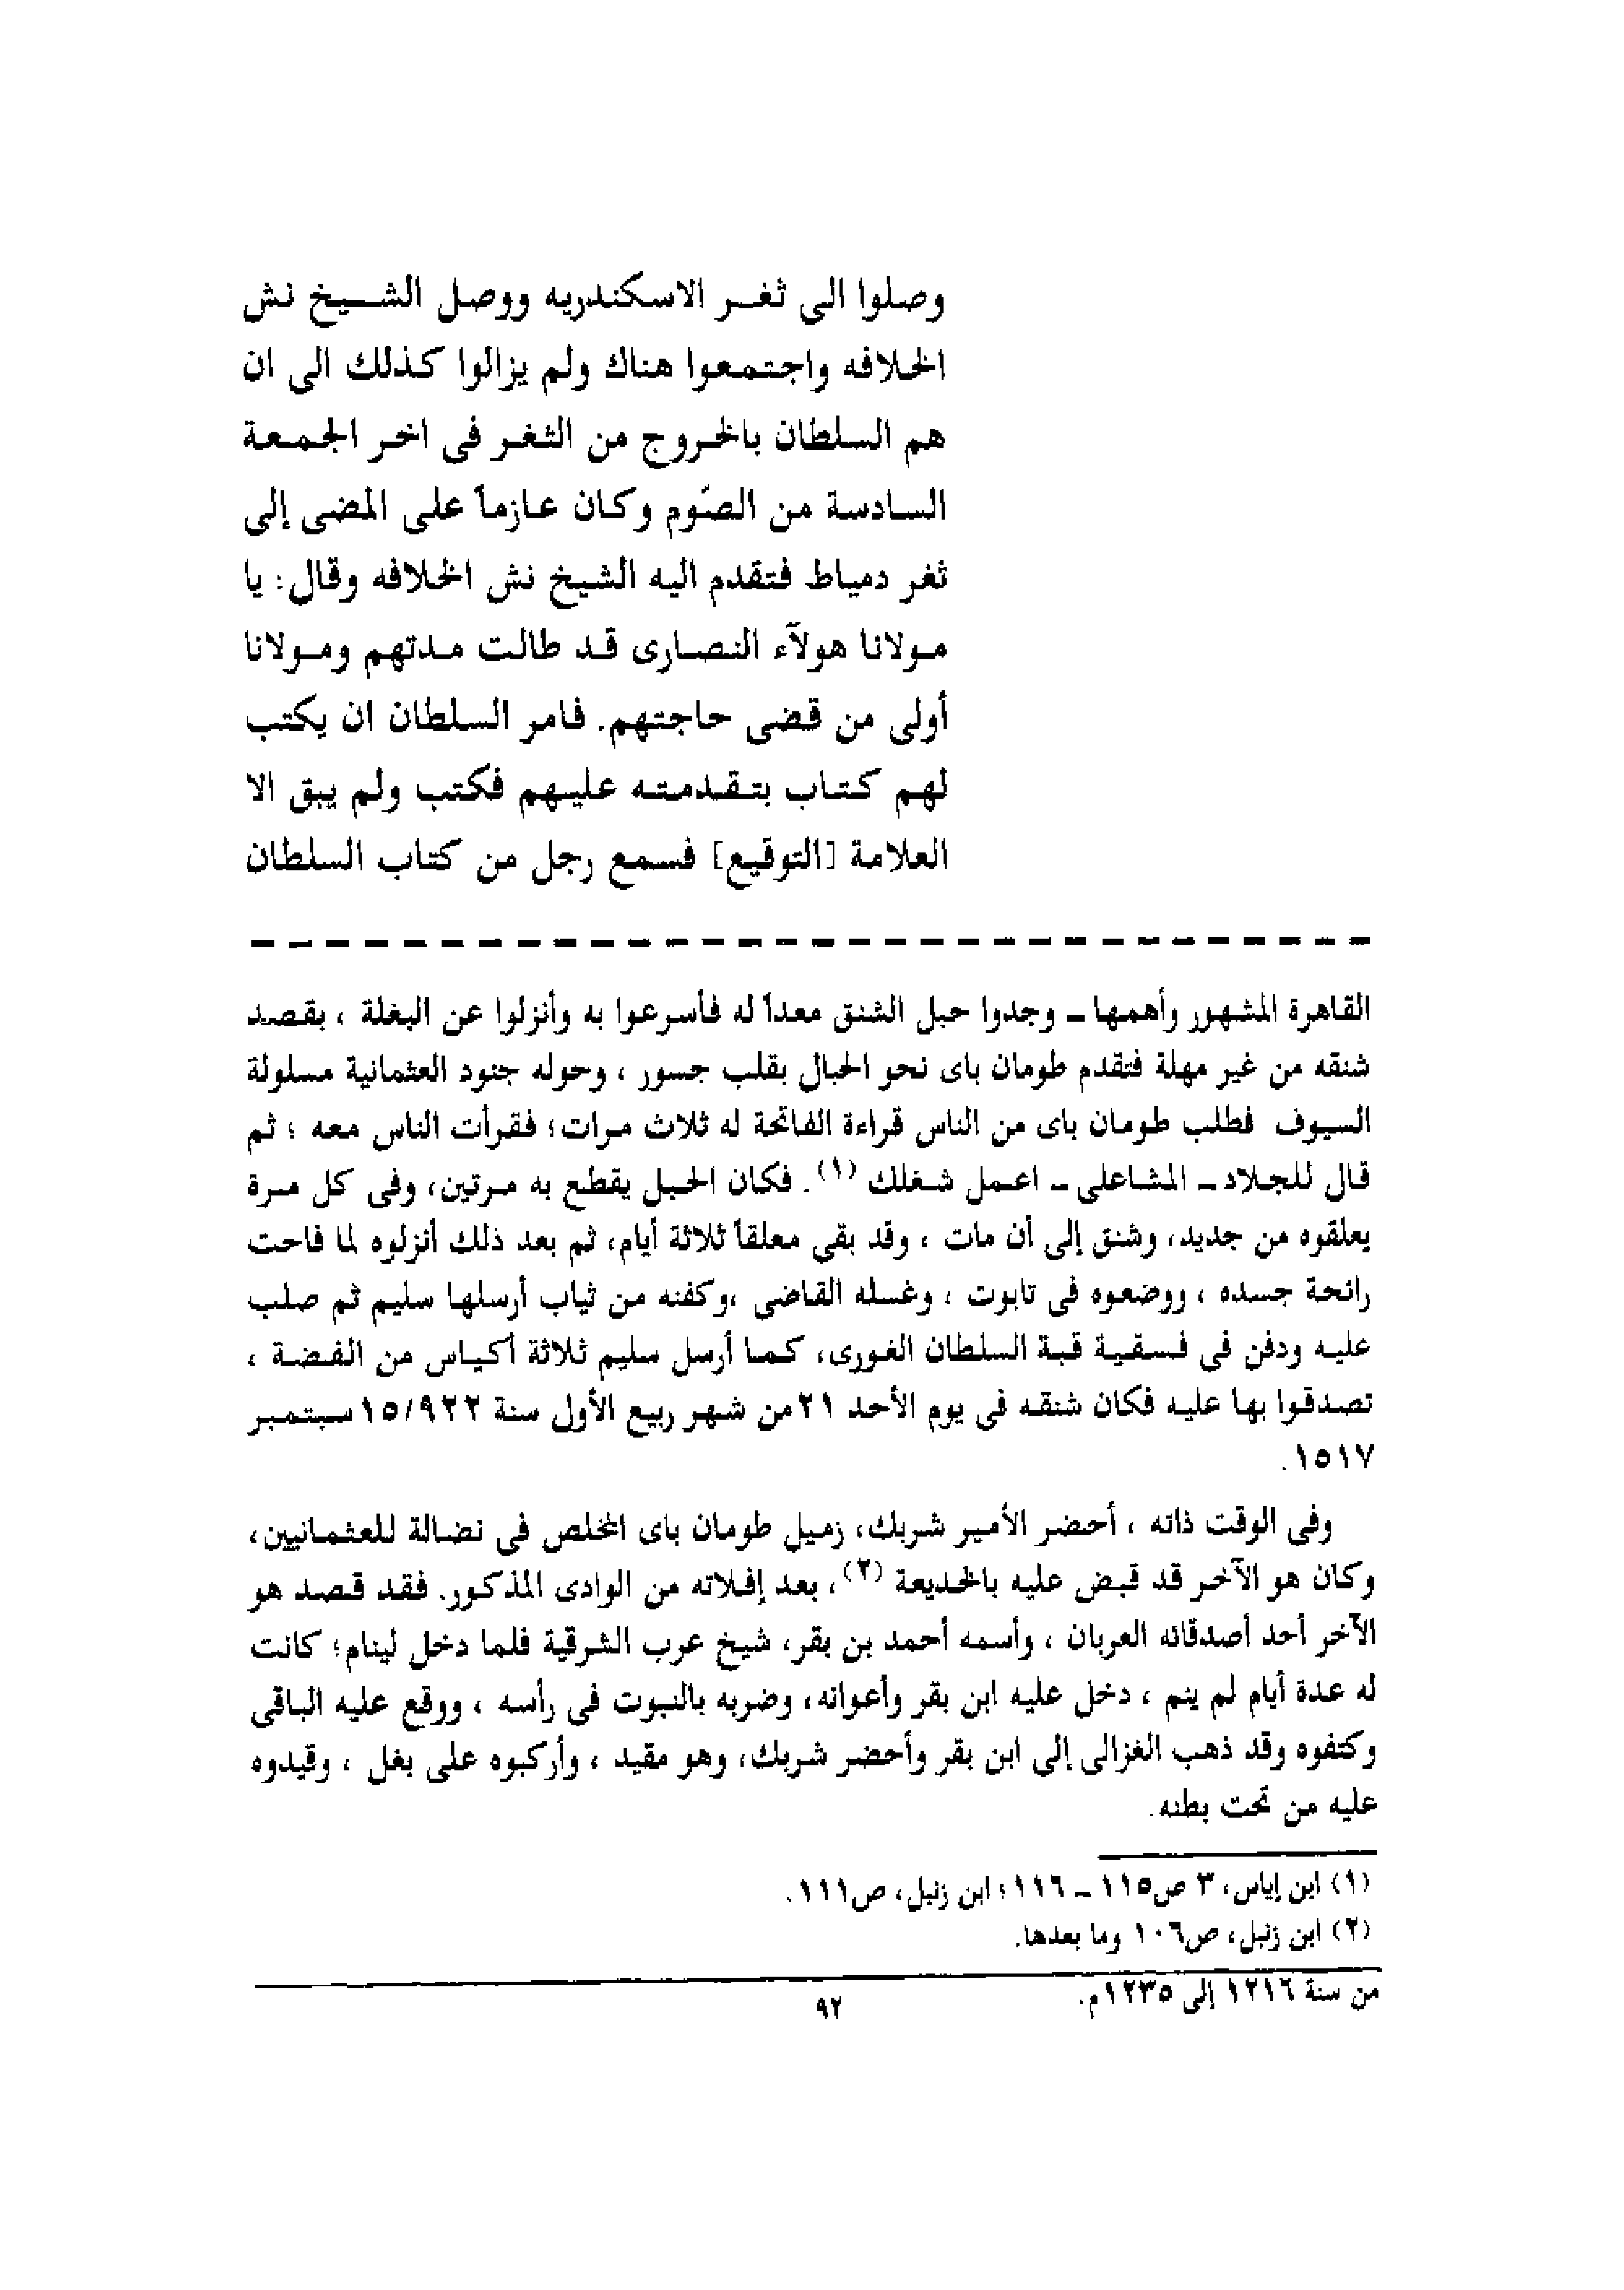 وصلوا الى ثغر الاسكندريه ووصل الشيخ نش
الخلافه واجتمعوا هناك ولم يزالوا كذلك الى ان
هم السلطان بالخروج من الثغر فى اخر الجمعة
السادسة من الصّوم وكان عازماً على المضى إلى
ثغر دمياط فتقدم اليه الشيخ نش الخلافه وقال: يا
مولانا هولآء النصارى قد طالت مدتهم ومولانا
أولى من قضى حاجتهم. فامر السلطان ان يكتب
لهم كتاب بتقدمته عليهم فكتب ولم يبق الا
العلامة [التوقيع] فسمع رجل من كتاب السلطان
القاهرة المشهور وأهمها ـ وجدوا حبل الشنق معداً له فأسرعوا به وأنزلوا عن البغلة ، بقصد
شنقه من غير مهلة فتقدم طومان باى نحو الحبال بقلب جسور ، وحوله جنود العثمانية مسلولة
السيوف فطلب طومان باى من الناس قراءة الفاتحة له ثلاث مرات؛ فقرأت الناس معه ؛ ثم
قال للجلاد ـ المشاعلى ـ اعمل شغلك (١). فكان الحبل يقطع به مرتين، وفى كل مرة
يعلقوه من جديد، وشنق إلى أن مات ، وقد بقى معلقاً ثلاثة أيام، ثم بعد ذلك أنزلوه لما فاحت
رائحة جسده ، ووضعوه فى تابوت ، وغسله القاضى ،وكفنه من ثياب أرسلها سليم ثم صلب
عليه ودفن فى فسقية قبة السلطان الغورى، كما أرسل سليم ثلاثة أكياس من الفضة ،
تصدقوا بها عليه فكان شنقه فى يوم الأحد ٢١من شهر ربيع الأول سنة ١٥/٩٢٢سبتمبر
١٥١٧.
وفى الوقت ذاته ، أحضر الأمير شربك، زميل طومان باى المخلص فى نضالة للعثمانيين،
وكان هو الآخر قد قبض عليه بالخديعة (٢)، بعد إفلاته من الوادى المذكور. فقد قصد هو
الآخر أحد أصدقائه العربان ، وأسمه أحمد بن بقر، شيخ عرب الشرقية فلما دخل لينام؛ كانت
له عدة أيام لم ينم ، دخل عليه ابن بقر وأعوانه، وضربه بالنبوت فى رأسه ، ووقع عليه الباقى
وكتفوه وقد ذهب الغزالى إلى ابن بقر وأحضر شربك، وهو مقيد ، وأركبوه على بغل ، وقيدوه
عليه من تحت بطنه.
(١) ابن إياس، ٣ ص١١٥ ـ ١١٦؛ ابن زنبل، ص١١١.
(٢) ابن زنبل، ص١٠٦ وما بعدها.
من سنة ١٢١٦ إلى ١٢٣٥م.
٩٢